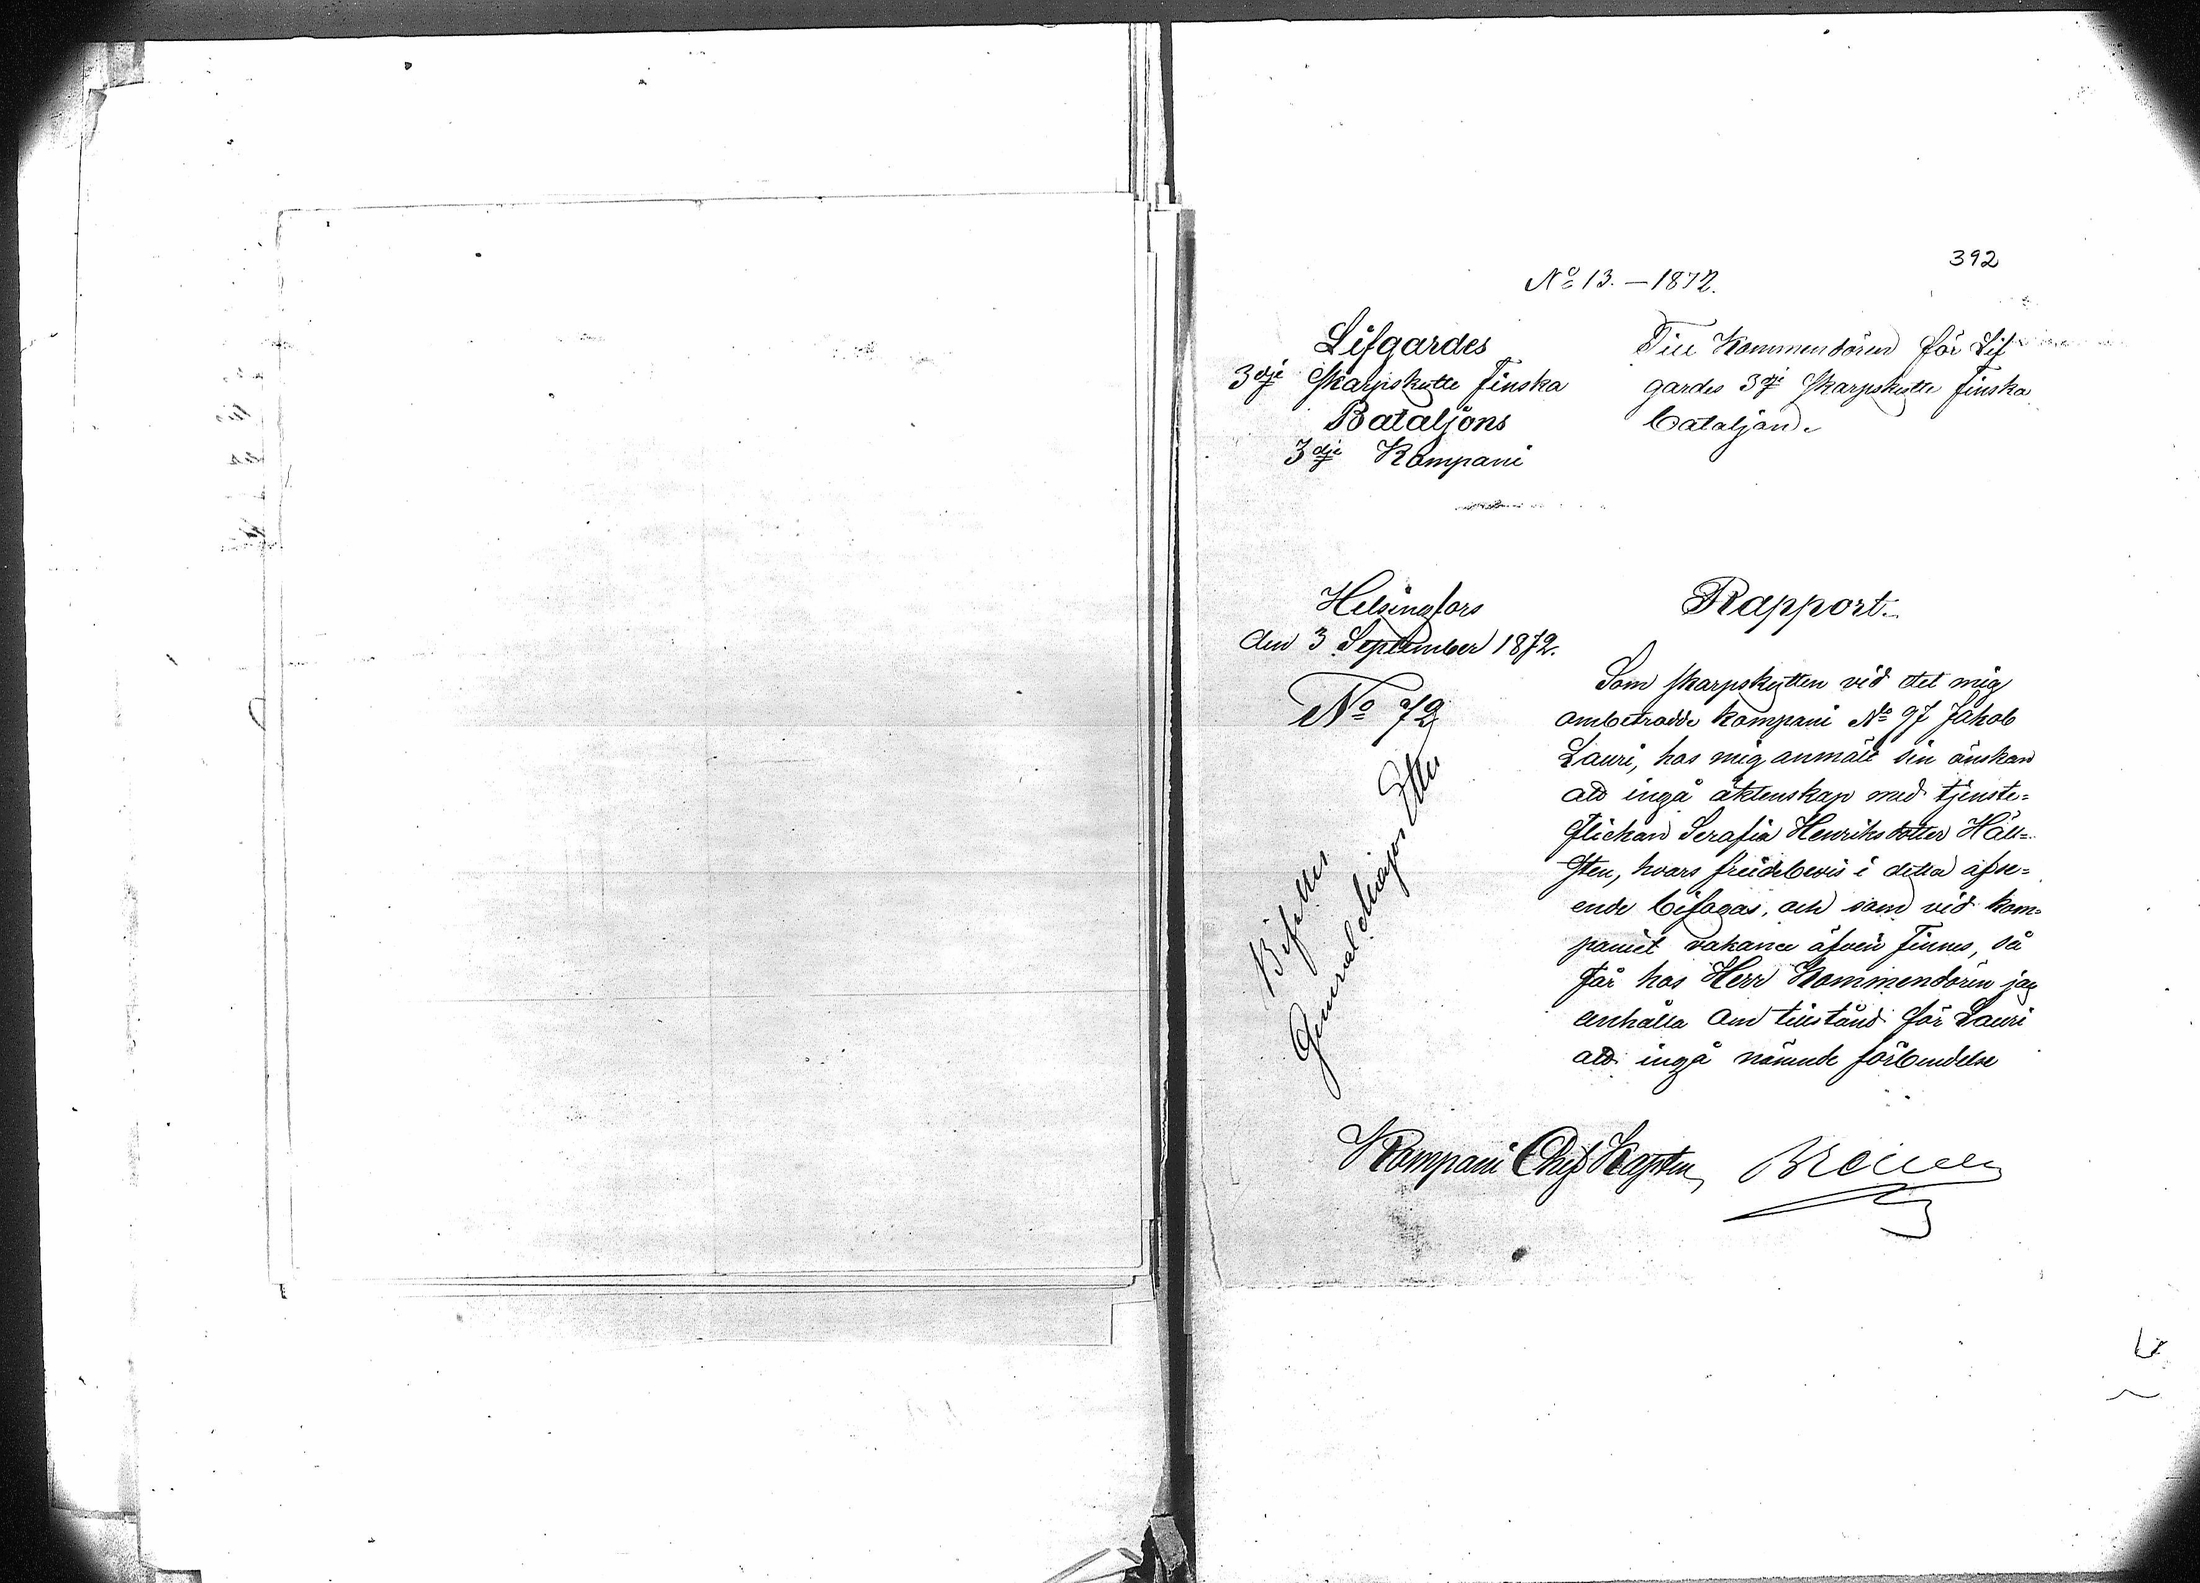 392
No 13. – 1872.
Lifgardes
3dje Skarpskytte Finska
Bataljons
3dje Kompani
Till Kommendören för Lif
gardes 3dje Skarpskytte Finska
bataljon.
Helsingfors
den 3 September 1872.
No 72
Rapport.
Som skarpskytten vid det mig
ombetrodde kompani No 97 Jakob
Lauri, hos mig anmält sin önskan
att ingå äktenskap med tjenste=
flickan Serafia Henriksdotter Häll=
sten, hvars freidebevis i detta afse=
ende bifogas, och som vid kom=
paniet vakance äfven finnes, så
får hos Herr Kommendören jag
anhålla om tillstånd för Lauri
att ingå nämnde förbindelse
Bifalles
General Major Etter
Kompani Chef Kapten